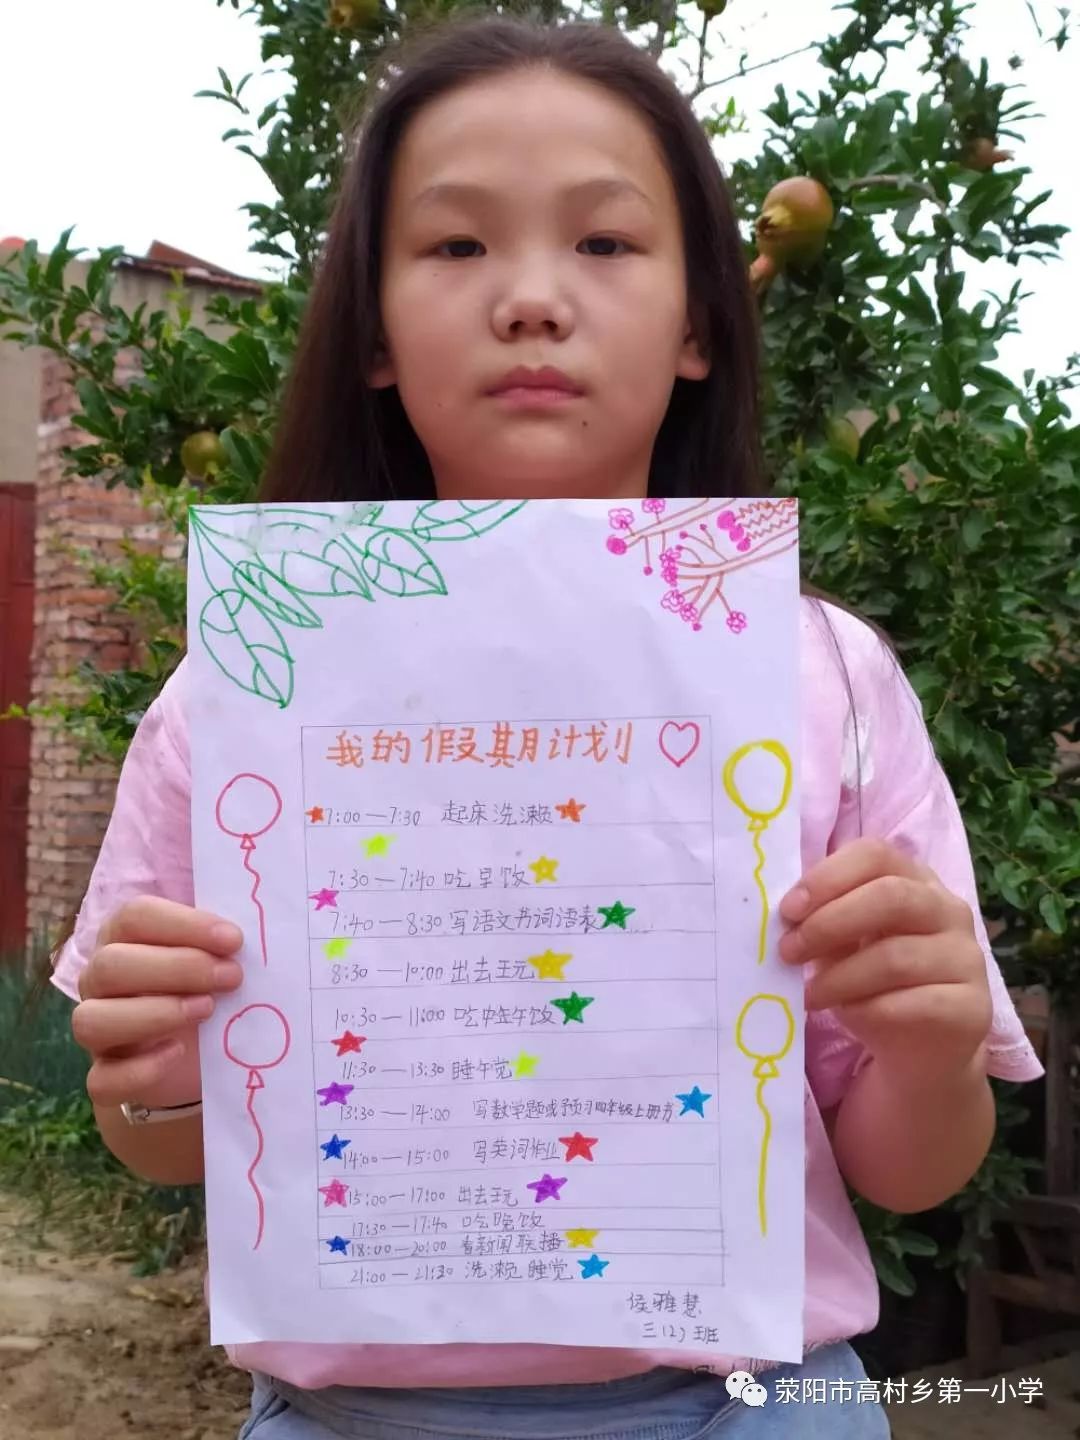 我的假期计划
7:00—7:30 起床洗濑
7:30—7:40 吃早饭
7:40—8:30 写语文书词语表
8:30—10:00 出去玩
10:30—11:00 吃中午饭
11:30—13:30 睡午觉
13:30—14:00 写数学题或预习四年级上册书
14:00—15:00 写英词作业
15:00—17:00 出去玩
17:30—17:40 吃晚饭
18:00—20:00 看新闻联播
21:00—21:30 洗濑睡觉
侯雅慧
三(2)班
荥阳市高村乡第一小学